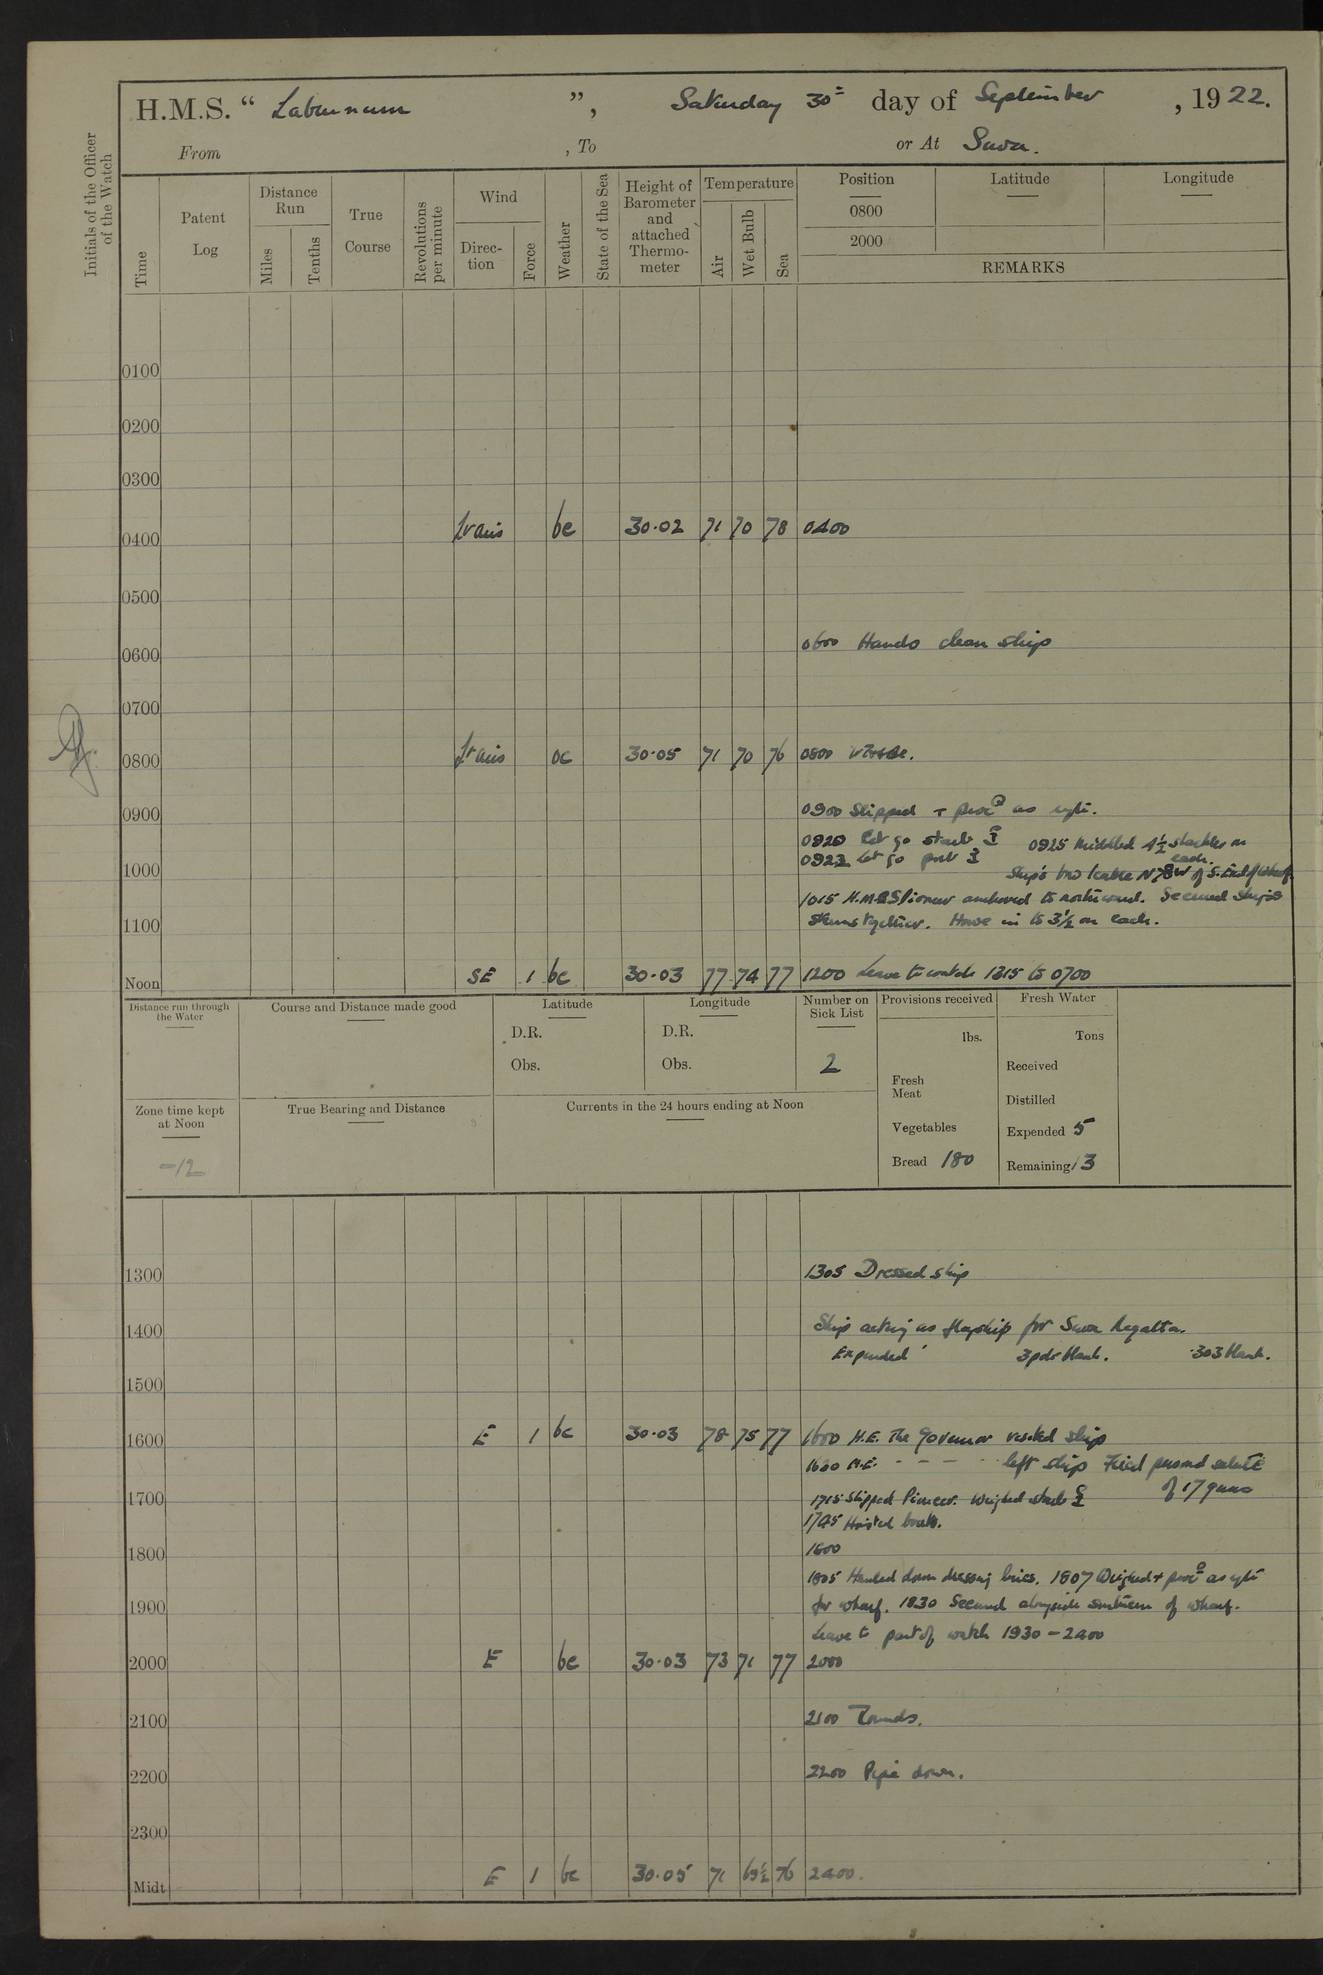 H.M.S. “ Laburnum ”, Saturday 30th day of September, 1922.
From , To or At Suva.
Initials of the Officer of the Watch
Time
Patent Log
Distance Run
Miles
Tenths
True Course
Revolutions per minute
Wind
Direc-tion
Force
Weather
State of the Sea
Height of Barometer and attached Thermo-meter
Temperature
Air
Wet Bulb
Sea
Position Latitude Longitude
0800
2000
REMARKS
0100
0200
0300
0400 bc 30·02 71 70 78 0400
0500
0600 0600 Hands clean ship
0700
0800 oc 30·05 71 70 76 0800
0900 0900 Slipped + procd as
0920 Let go starb 0925 Middled 4½ shackles on each.
0923 Let go port
1000 Ship's bro N78W of S. End of Wharf
1015 H.M.S Pioneer anchored to northward. Secured ships
1100 sterns together. Hove in to 3½ on each.
Noon SE 1 bc 30·03 77 74 77 1200 Leave to watch 1315 to 0700
Distance run through the Water
Course and Distance made good
Latitude
D.R.
Obs.
Longitude
D.R.
Obs.
Number on Sick List
2
Provisions received
lbs.
Fresh Meat
Vegetables
Bread 180
Fresh Water
Tons
Received
Distilled
Expended 5
Remaining 13
Zone time kept at Noon
-12
True Bearing and Distance
Currents in the 24 hours ending at Noon
1300 1305 Dressed ship
1400 Ship acting as flagship for Suva Regatta.
Expended 3pdr blank. ·303 blank.
1500
1600 E 1 bc 30·03 78 75 77 1600 H.E. The Governor visited ship
H.E. - - - - left ship Fired personal salute
1700 of 17 guns
1715 Slipped Pioneer. Weighed starb
1745 Hoisted boats.
1800
1805 Hauled down dressing lines. 1807 Weighed + procd as
1900 for wharf. 1830 Secured alongside southern of wharf.
Leave to part of watch 1930 - 2400
2000 E bc 30·03 73 71 77 2000
2100 2100 Rounds.
2200 2200 Pipe down.
2300
Midt E 1 bc 30·05 71 69½ 76 2400.